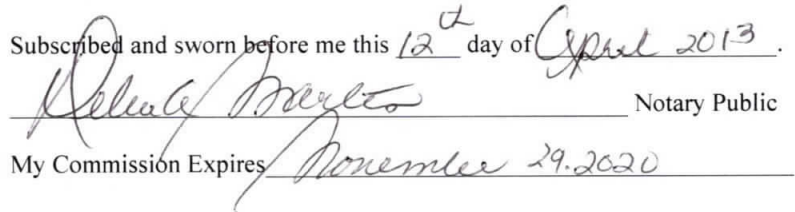 Subscribed and sworn before me this 12th day of April 2013.
Notary Public
My Commission Expires November 29.2020